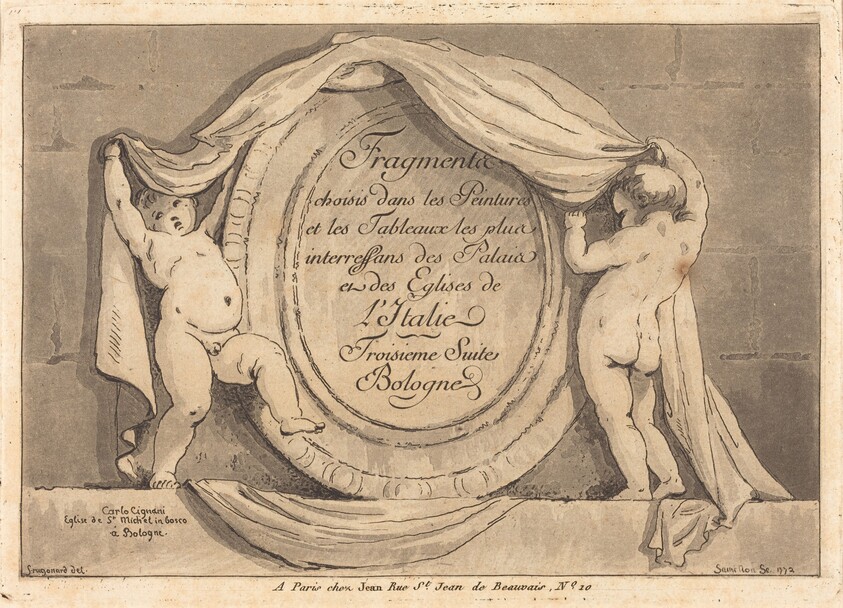 Fragments
choisis dans les Peintures
et les Tableaux les plus
interressans des Palais
et des Eglises de
L'Italie
Troisieme Suite
Bologne
Carlo Cignani
Eglise de St Michel in bosco
a Bologne.
Fragonard del.
Saint Non Sc. 1772
A Paris chez Jean Rue St. Jean de Beauvais, No. 10